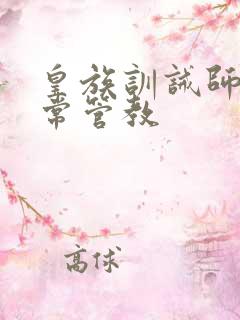 皇族訓誡師
常管教
高俅